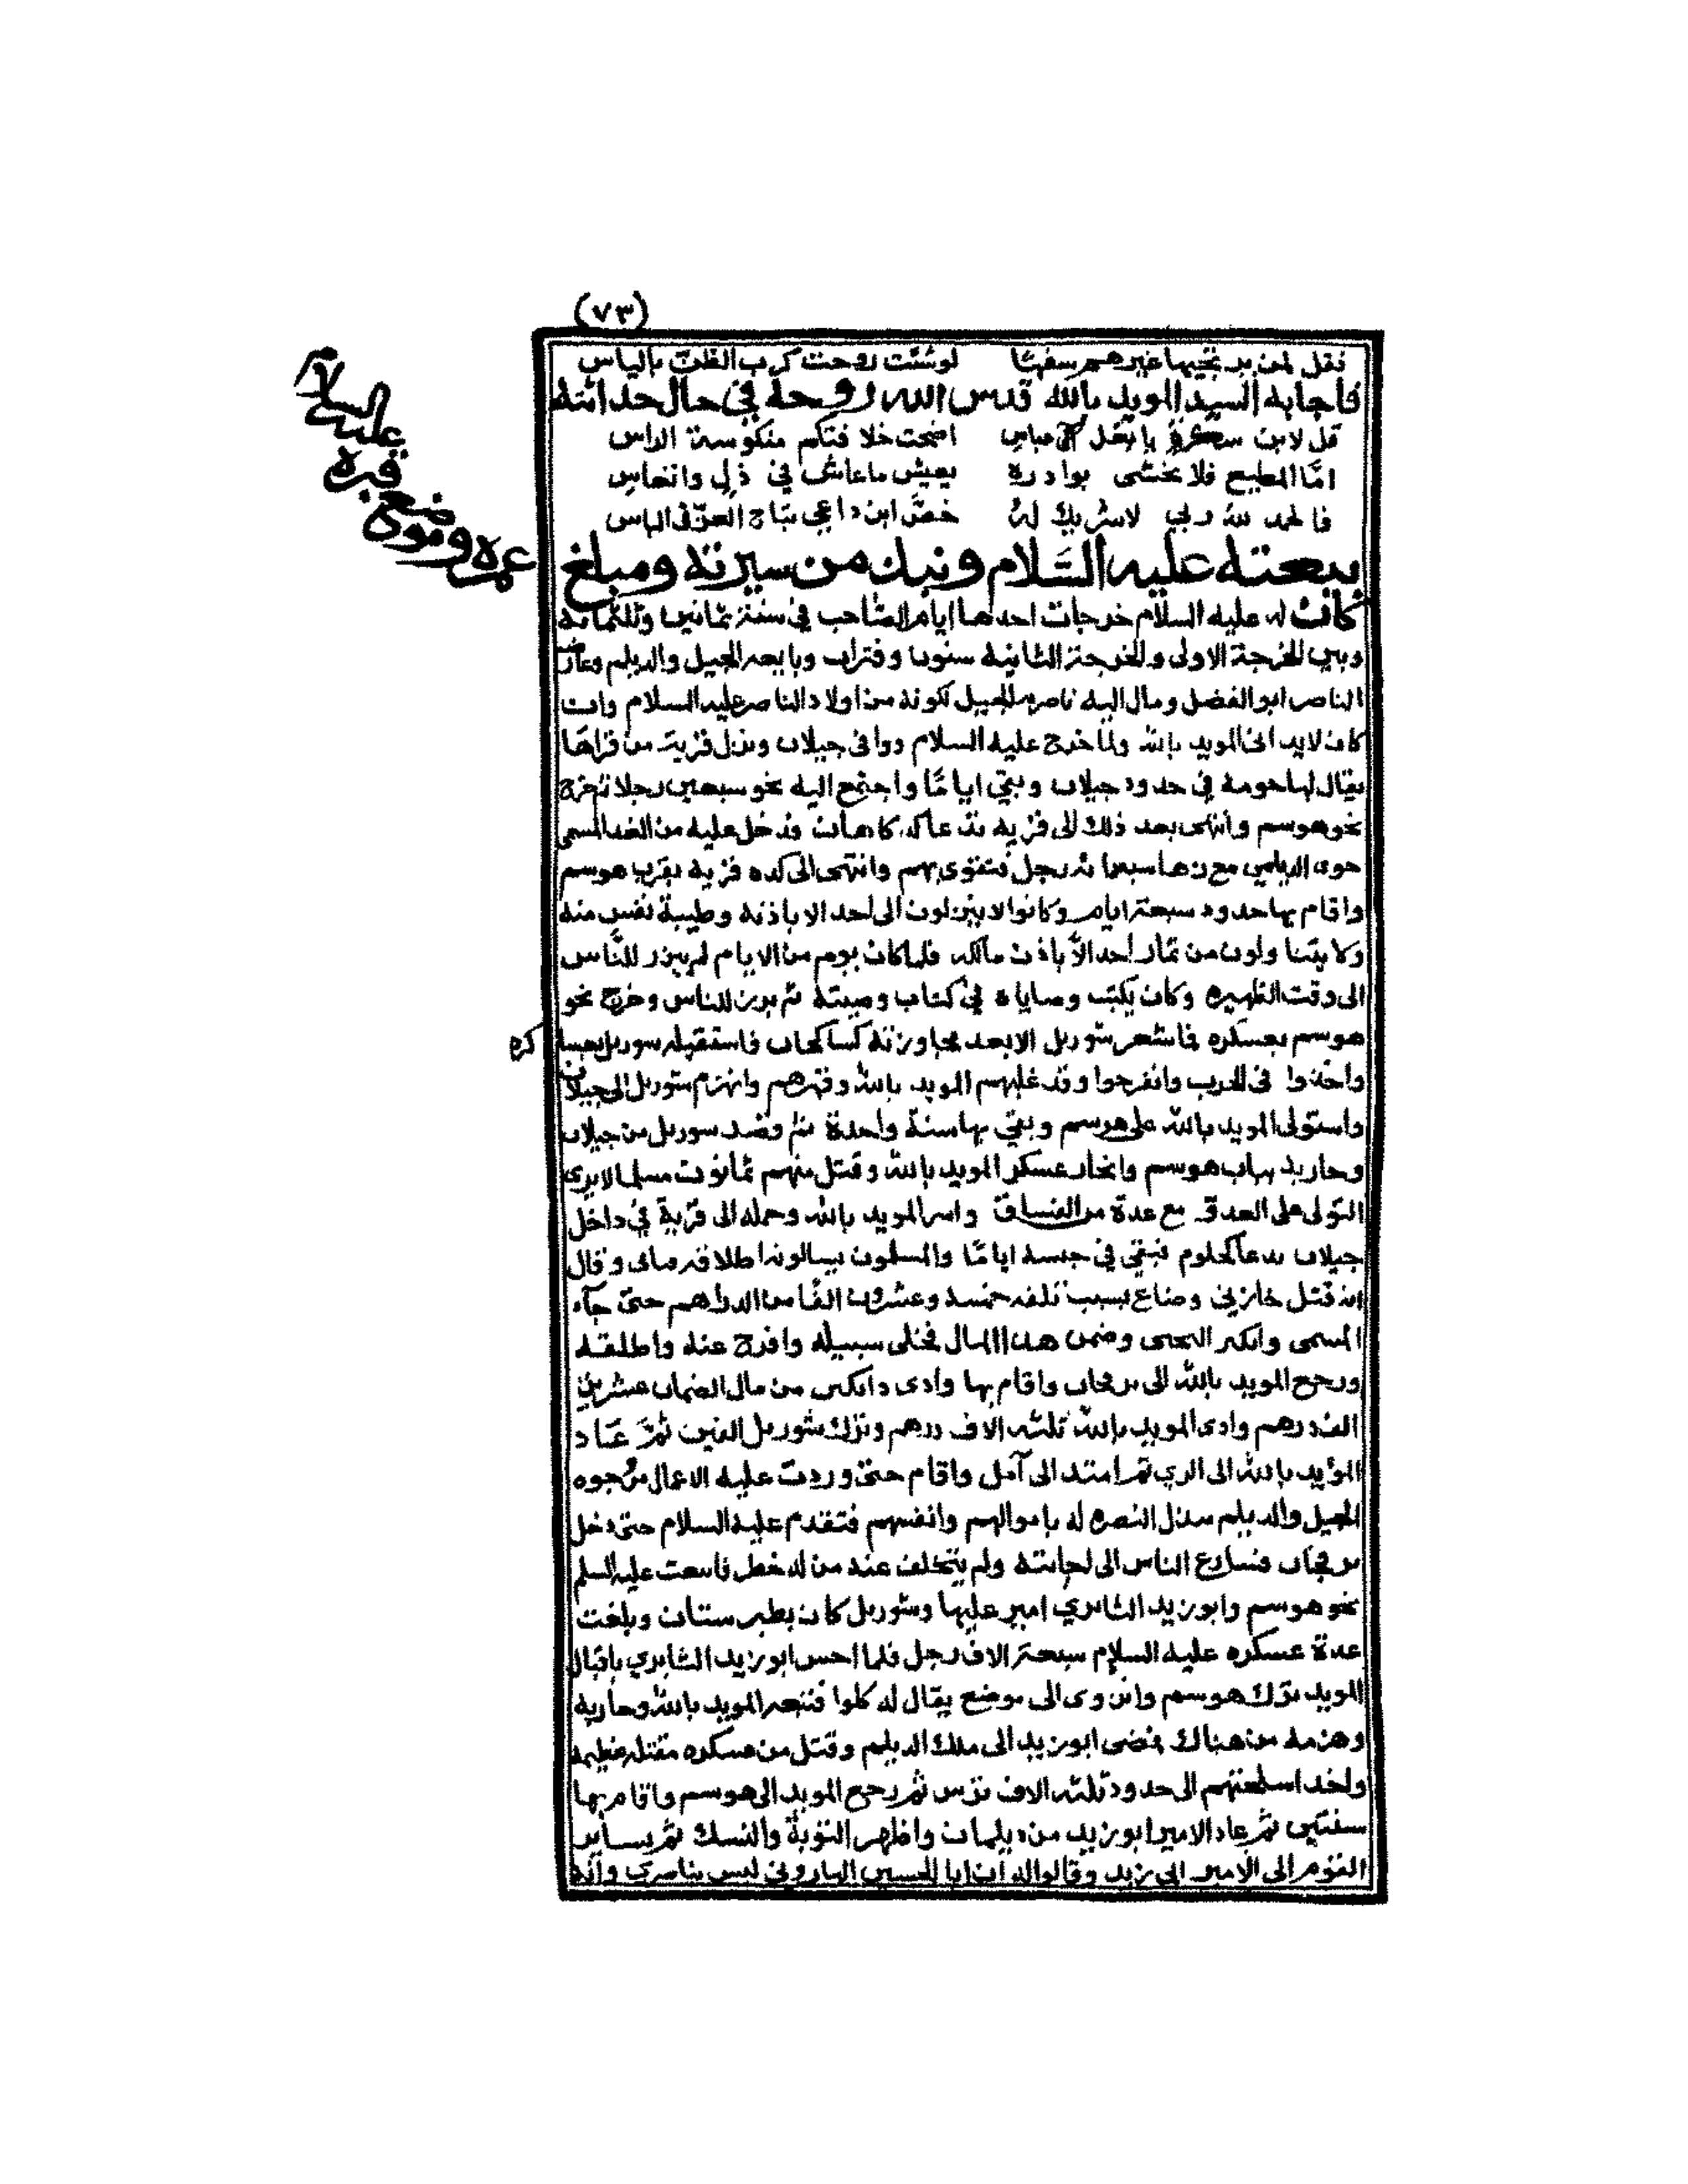 (٧٣)
فقل لمن يرتجيها غيرهم سفها لوشئت روحت كرب الظن بالياس
فاجابه السيد المويد بالله قدس الله روحه في حال حداثته
قل لابن اضحت خلافتكم منكوسة الراس
امّا المطيع فلا تخشى بوادره يعيش ماعاش في ذل وانعاس
فالحمد لله ربي لاشريك له خصَّ ابن داعي بتاج العزّ في الباس
بيعته عليه السَّلام ونبذ من سيرته ومبلغ
عمره وموضع قبره عليه السلام
كانت له عليه السلام خرجات احدها ايام الصاحب في سنة ثمانين وثلثمائة
وبين الخرجة الاولى والخرجة الثانية سنون وفترات وبايعه الجيل والديلم وعارض
الناصر ابو الفضل ومال اليه ناصريه الجبيل لكونه من اولاد الناصر عليه السلام وان
كان لايدانى المويد بالله ولما خرج عليه السلام وافى جيلان ونزل قرية من قراها
يقال لها حومة في حدود جيلان وبقي ايامًا واجتمع اليه نحو سبعين رجلا ثم خرج
نحو هوسم وانتهى بعد ذلك الى قرية تدعا كد كاهان ودخل عليه من الغد المسمى
حوى الديلمي مع زها سبعمائة رجل فتقوى بهم وانتهى الى كده قرية بقرب هوسم
واقام بها حدود سبعة ايام وكانوا لا ينزلون الى احد الا باذنه وطيبة نفس منه
ولا يتناولون من ثمار احد الاّ باذن مالكه فلما كان يوم من الايام لم يبرز للنَّاس
الى وقت الظهيره وكان يكتب وصاياه في كتاب وصيته ثم برز للناس وخرج نحو
هوسم بعسكره فاشعر شوزيل الا بعد مجاوزته فاستقبله شوزيل بعساكره
واخذوا في الحرب وانفرجوا وقد غلبهم المويد بالله وقهرهم وانهزم شوزيل الى جيلان
واستولى المويد بالله على هوسم وبقي بها سنة واحدة ثم وفد شوزيل من جيلان
وحاربه بباب هوسم وانحاز عسكر المويد بالله وقتل منهم ثمانون مسلما لا يرى
التولى على العدو مع عدة من الفساق واسر المويد بالله وحمله الى قرية في داخل
جيلان فبقي في حبسه ايامًا والمسلمون يسالونه اطلاقه فابى وقال
انه قتل خازني وضاع بسبب تلفه خمسة وعشرون الفًا من الدراهم حتى جآء
المسمى وانكير وضمن هذا المال فخلى سبيله وافرج عنه واطلقه
ورجع المويد بالله الى واقام بها وادى من مال الضمان عشرين
الف درهم وادى المويد بالله ثلثه الاف درهم وترك شوزيل الفين ثمّ عاد
المؤيد بالله الى الري ثم امتد الى آمل واقام حتى وردت عليه الاعمال من وجوه
الجيل والديلم ببذل النصره له باموالهم وانفسهم فتقدم عليه السلام حتى دخل
فسارع الناس الى اجابته ولم يتخلف عنه من له خطر فانبعث عليه السلم
نحو هوسم وابو زيد الثايري امير عليها وشوزيل كان بطبرستان وبلغت
عدة عسكره عليه السلام سبعة الاف رجل فلما احس ابو زيد الثايري باقبال
المويد ترك هوسم وانزوى الى موضع يقال له كلوا فتبعه المويد بالله وحاربه
وهزمه من هناك فمضى ابو زيد الى ملك الديلم وقتل من عسكره مقتله عظيمه
واخذ اسلحتهم الى حدود ثلثه الاف ترس ثم رجع المويد الى هوسم واقام بها
سنتين ثم عاد الامير ابو زيد من ديلمان واظهر التوبة والنسك ثم
القوم الى الامير ابي زيد وقالوا له ان ابا الحسين الهاروني ليس بناصري وانه